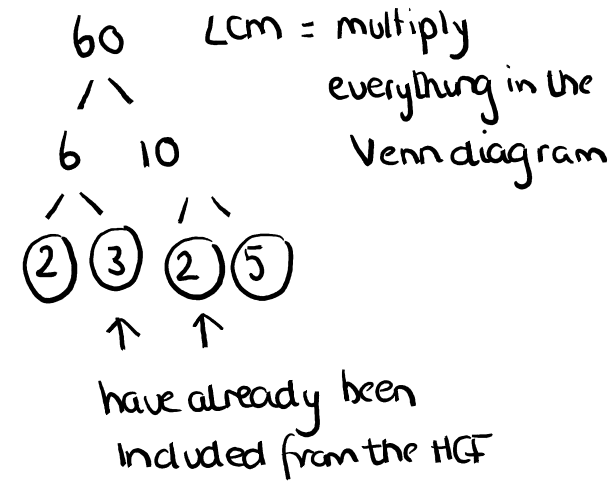 60 LCM = multiply
everything in the
6 10 Venn diagram
2 3 2 5
have already been
Included from the HCF